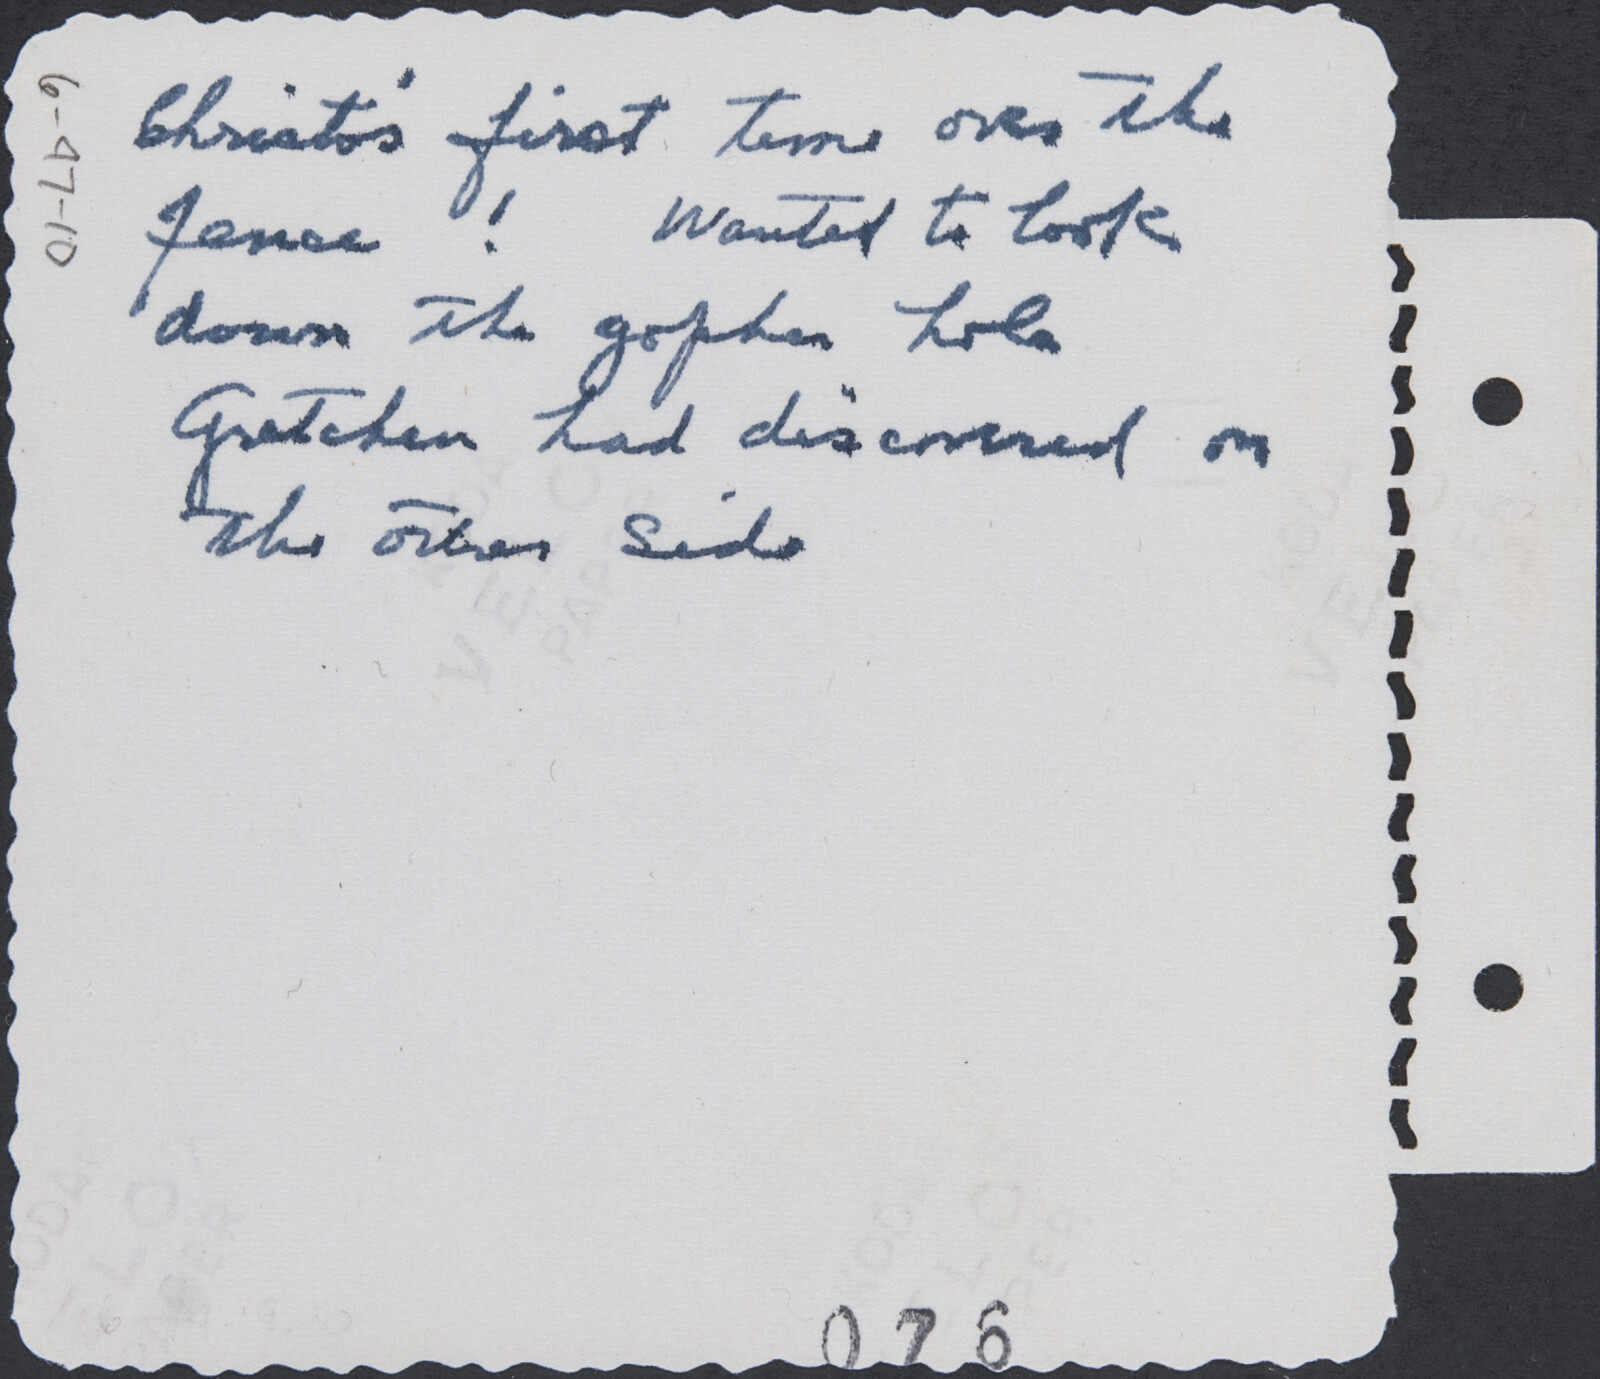 Christo's first time over the
fence ! Wanted to look
down the gopher hole
Gretchen had discovered on
the other side
6-47-10
076